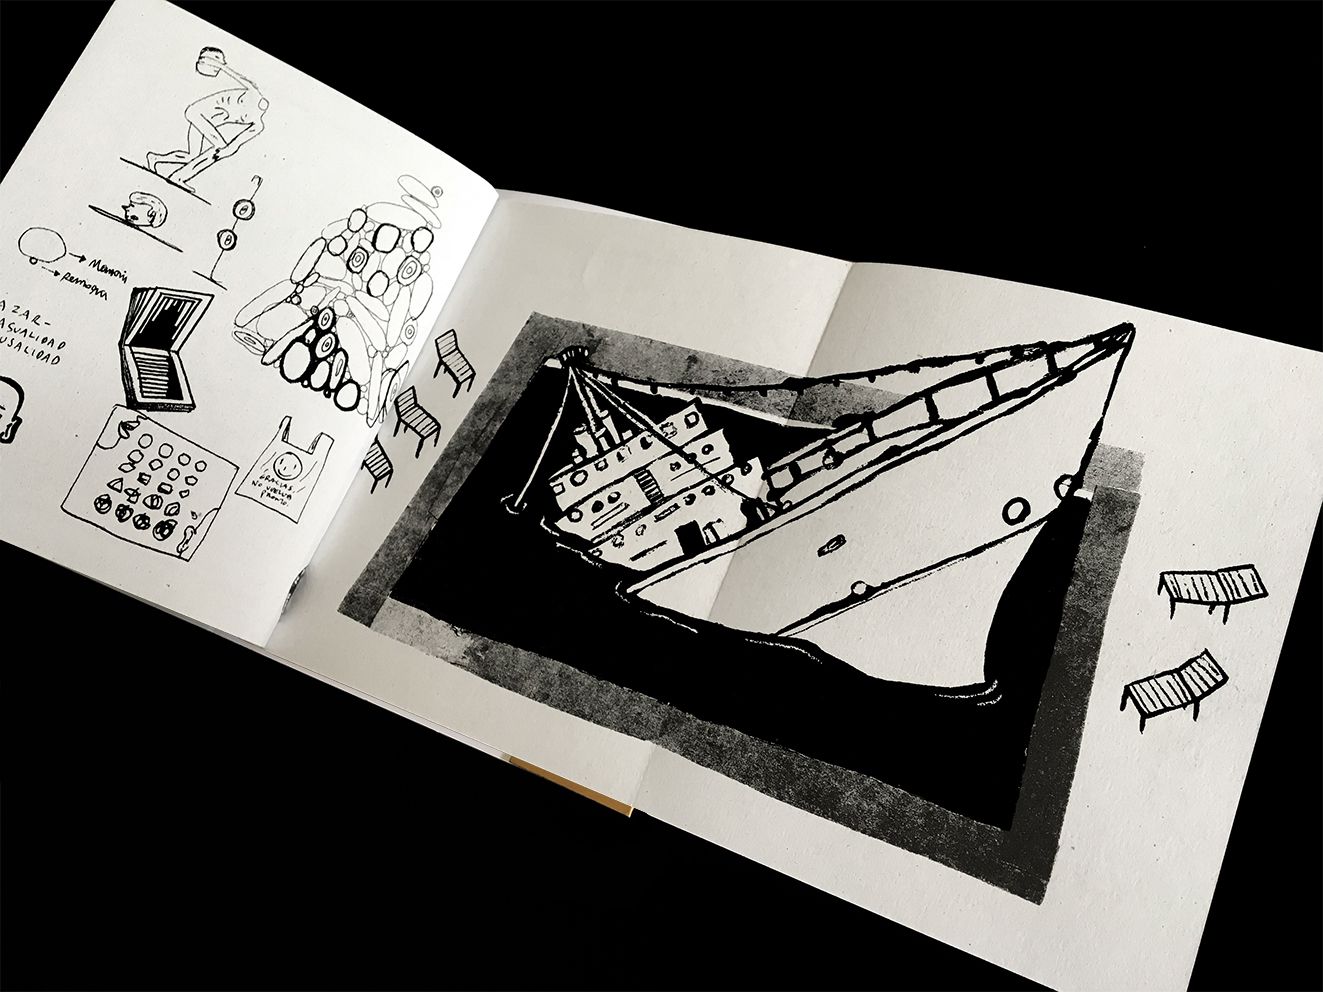 Memoria
AZAR-
ASUALIDAD
USALIDAD
GRACIAS.
NO VUELVA
PRONTO.